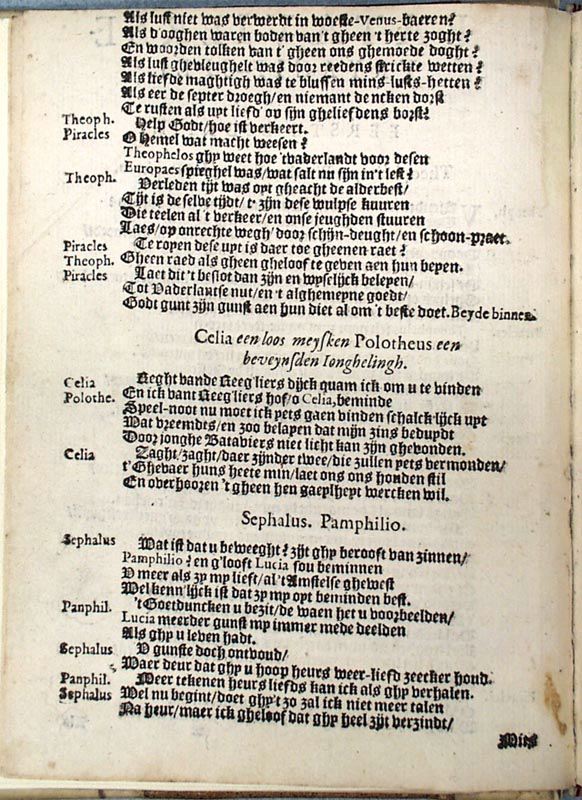 Als lust niet was verwerdt in woeste-Venus-baeren?
Als d'ooghen waren boden van't gheen 't herte zoght?
En woorden tolken van t' gheen ons ghemoede doght?
Als lust ghevleughelt was door reedens strickte wetten?
Als liefde maghtigh was te blussen mins-lusts-hetten?
Als eer de septer droegh/en niemant dencken dorst
Te rusten als upt liefd' op sijn gheliefdens borst?
Theoph. Help Godt/hoe ist verkeert.
Piracles O hemel wat macht weesen?
Theophelos ghy weet hoe 'tvaderlandt voor desen
Europaes spieghel was/wat salt nu sijn in't lest?
Theoph. Verleden tijt was oyt gheacht de alderbest/
Tijt is de selve tijdt/t' zijn dese wulpse kuuren
Die teelen al t' verkeer/en onse jeughden stuuren
Laes/op onrechte wegh/door schijn-deught/en schoon-praet.
Piracles Te ropen dese upt is daer toe gheenen raet?
Theoph. Gheen raed als gheen gheloof te geven aen hun beyen.
Piracles Laet dit 't beslot dan zijn en wyselijck beleyen/
Tot Vaderlantse nut/en 't alghemeyne goedt/
Godt gunt zijn gunst aen hun diet al om 't beste doet. Beyde binnen.
Celia een loos meysken Polotheus een
beveynsden Ionghelingh.
Celia Reght vande Reeg'liers dijck quam ick om u te vinden
Polothe. En ick vant Reeg'liers hof/o Celia, beminde
Speel-noot nu moet ick yets gaen vinden schalck-lijck upt
Wat vreemdts/en zoo beleyen dat mijn zins beduydt
Door jonghe Bataviers niet licht kan zijn ghevonden.
Celia Zaght/zaght/daer zijnder twee/die zullen yets vermonden/
t' Ghevaer huns heete min/laet ons ons honden stil
En overhooren 't gheen hen gaeylheyt wercken wil.
Sephalus. Pamphilio.
Sephalus Wat ist dat u beweeght? zijt ghy berooft van zinnen/
Pamphilio? en g'looft Lucia sou beminnen
V meer als zy my lieft/al 't Amstelse ghewest
Wel kenn'lijck ist dat zy my oyt beminden best.
Panphil. 't Goetduncken u bezit/de waen het u voorbeelden/
Lucia meerder gunst my immer mede deelden
Als ghy u leven hadt.
Sephalus V gunste doch ontvoud/
Waer deur dat ghy u hoop heurs weer-liefd zeecker houd.
Panphil. Meer tekenen heurs liefds kan ick als ghy verhalen.
Sephalus Wel nu begint/doet ghy't zo zal ick niet meer talen
Na heur/maer ick gheloof dat ghy heel zijt verzindt/
Mits